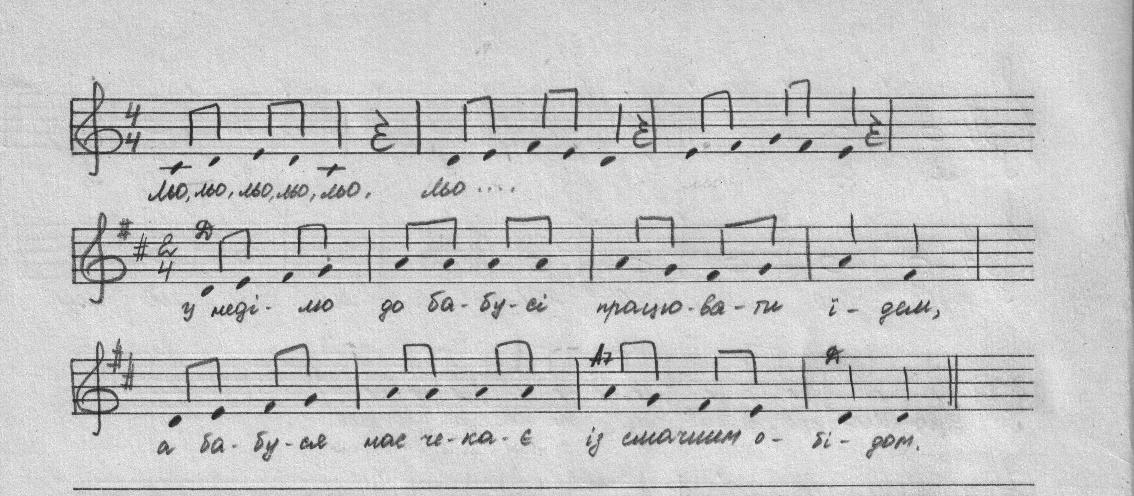 4 4
льо, льо, льо, льо, льо, льо....
2 4 D
у неді-лю до ба-бу-сі працю-ва-ти ї-дем,
A7 D
а ба-бу-ся нас че-ка-є із смачним о-бі-дом.